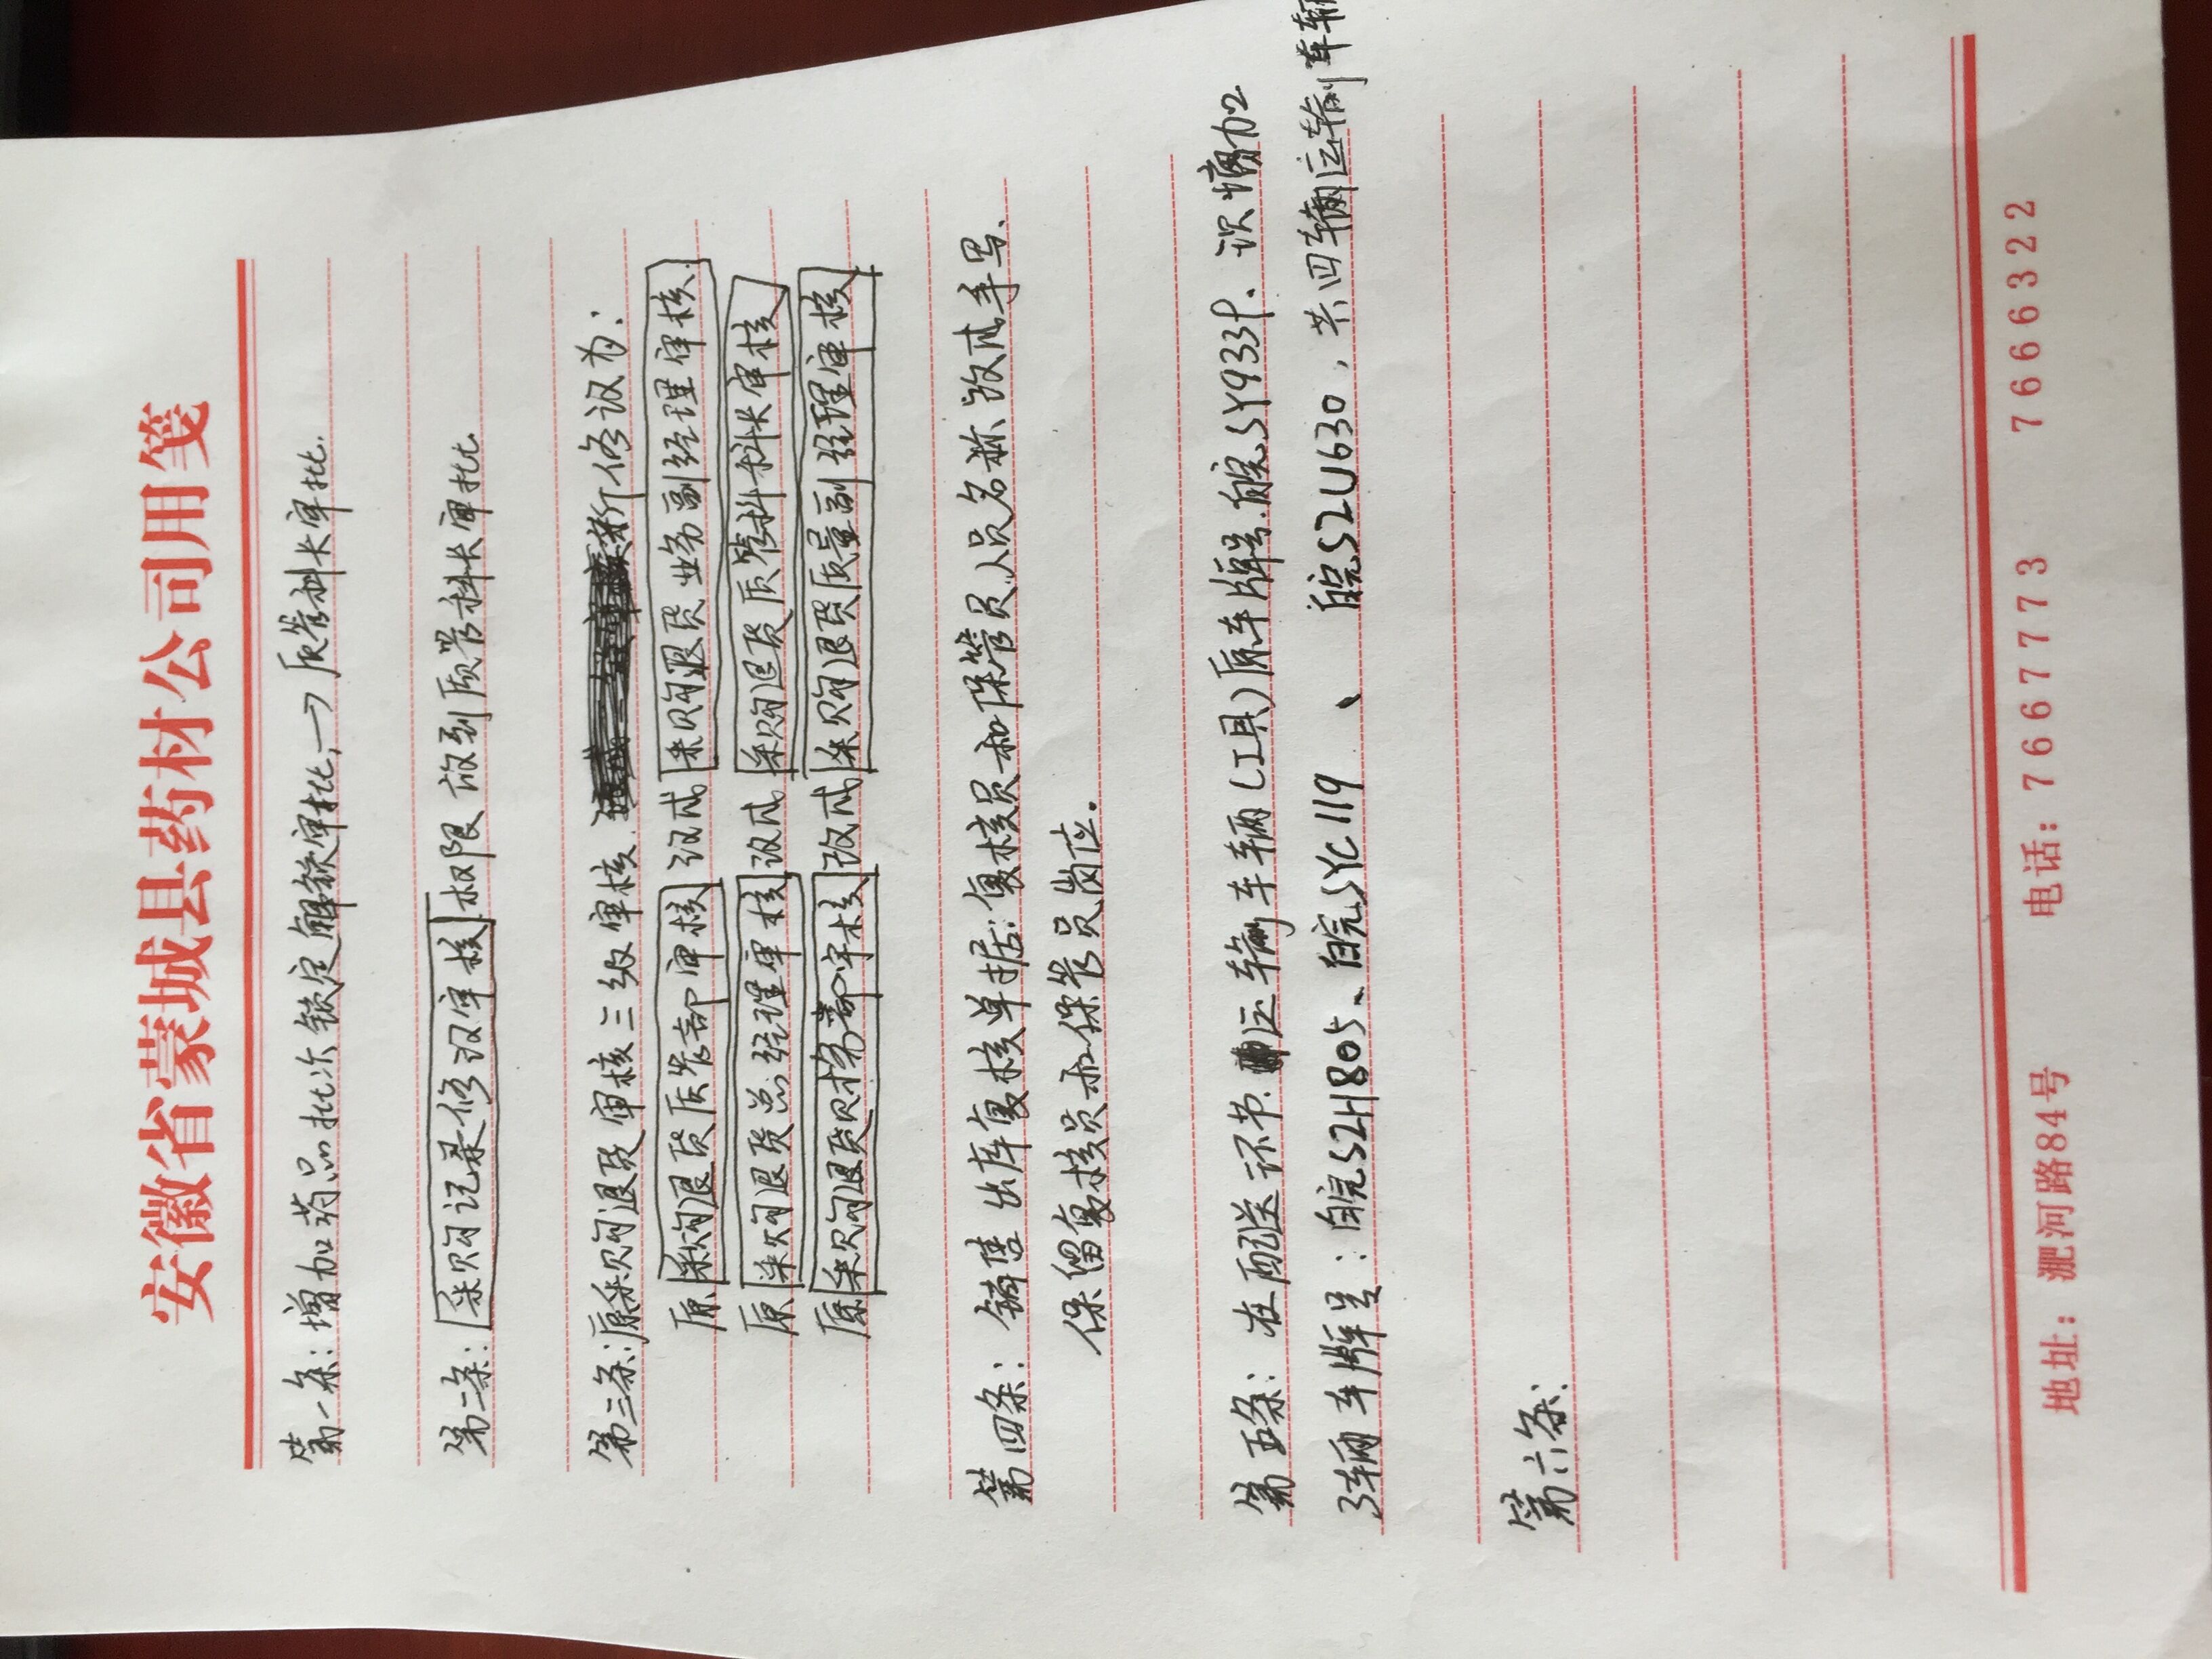 安徽省蒙城县药材公司用笺
第一条:增加药品批次锁定解锁审批,→质管科长审批.
第二条:采购记录修改审核权限 放到质管科长审批
第三条:原采购退货审核三级审核 新修改为:
原采购退货质管部审核改成采购退货业务副经理审核
原采购退货总经理审核改成采购退货质管科科长审核
原采购退货财务部审核改成采购退货质量副经理审核
第四条:销售出库复核单据:复核员和保管员人员名称改成手写、
保留复核员和保管员岗位.
第五条:在配送环节 运输车辆(工具)原车牌号.皖SY933P、 增加2
3辆车牌号:皖S2H805、皖SYC119、皖S2U630,共四辆运输车辆
第六条:
地址:淝河路84号 电话:7667773 7666322